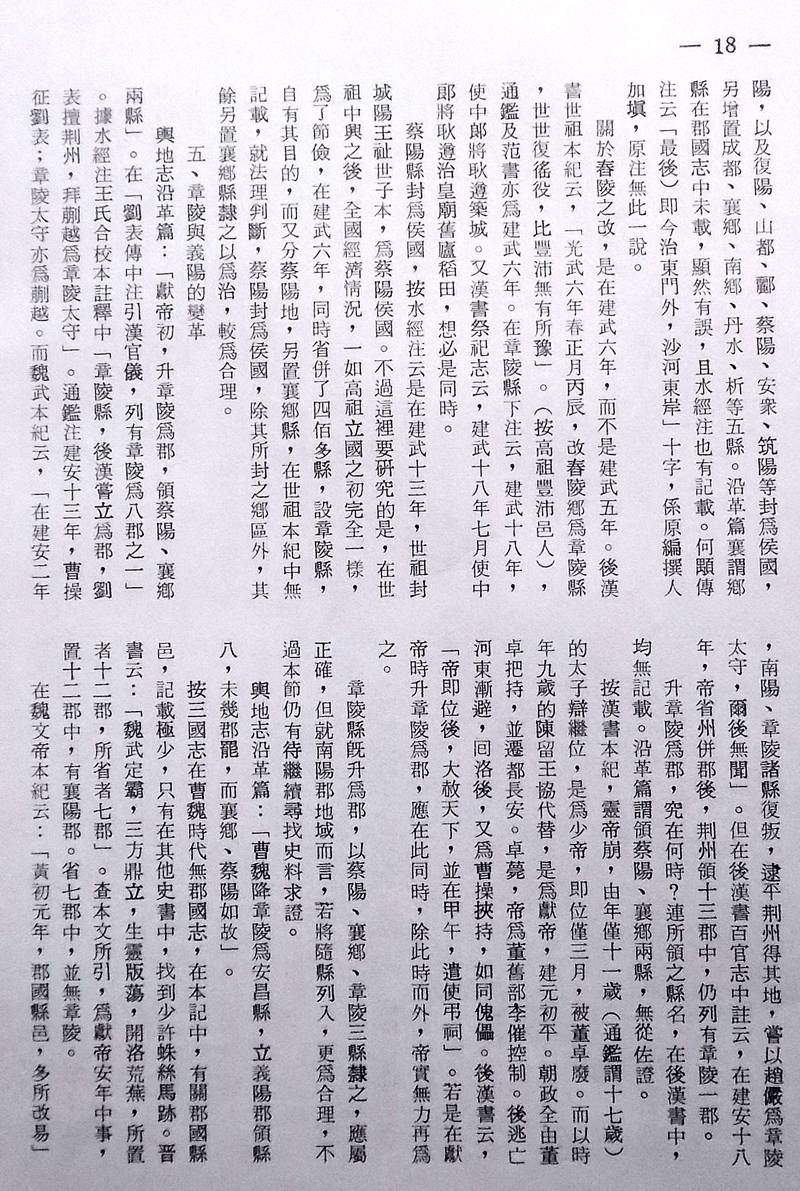 — 18 —
陽，以及復陽、山都、酈、蔡陽、安衆、筑陽等封爲侯國，
另增置成都、襄鄉、南鄉、丹水、析等五縣。沿革篇襄謂鄉
縣在郡國志中未載，顯然有誤，且水經注也有記載。何頤傳
注云「最後）即今治東門外，沙河東岸」十字，係原編撰人
加塡，原注無此一說。
關於舂陵之改，是在建武六年，而不是建武五年。後漢
書世祖本紀云，「光武六年春正月丙辰，改舂陵鄉爲章陵縣
，世世復徭役，比豐沛無有所豫」。（按高祖豐沛邑人），
通鑑及范書亦爲建武六年。在章陵縣下注云，建武十八年，
使中郎將耿遵築城。又漢書祭祀志云，建武十八年七月使中
郎將耿遵治皇廟舊廬稻田，想必是同時。
蔡陽縣封爲侯國，按水經注云是在建武十三年，世祖封
城陽王祉世子本，爲蔡陽侯國。不過這裡要研究的是，在世
祖中興之後，全國經濟情況，一如高祖立國之初完全一樣，
爲了節儉，在建武六年，同時省併了四佰多縣，設章陵縣，
自有其目的，而又分蔡陽地，另置襄鄉縣，在世祖本紀中無
記載，就法理判斷，蔡陽封爲侯國，除其所封之鄉區外，其
餘另置襄鄉縣隸之以爲治，較爲合理。
五、章陵與義陽的變革
輿地志沿革篇：「獻帝初，升章陵爲郡，領蔡陽、襄鄉
兩縣」。在「劉表傳中注引漢官儀，列有章陵爲八郡之一」
。據水經注王氏合校本註釋中「章陵縣，後漢嘗立爲郡，劉
表擅荆州，拜蒯越爲章陵太守」。通鑑注建安十三年，曹操
征劉表；章陵太守亦爲蒯越。而魏武本紀云，「在建安二年
，南陽、章陵諸縣復叛，逮平荆州得其地，嘗以趙儼爲章陵
太守，爾後無聞」。但在後漢書百官志中註云，在建安十八
年，帝省州併郡後，荆州領十三郡中，仍列有章陵一郡。
升章陵爲郡，究在何時？連所領之縣名，在後漢書中，
均無記載。沿革篇謂領蔡陽、襄鄉兩縣，無從佐證。
按漢書本紀，靈帝崩，由年僅十一歲（通鑑謂十七歲）
的太子辯繼位，是爲少帝，即位僅三月，被董卓廢。而以時
年九歲的陳留王協代替，是爲獻帝，建元初平。朝政全由董
卓把持，並遷都長安。卓薨，帝爲董舊部李傕控制。後逃亡
河東漸避，回洛後，又爲曹操挾持，如同傀儡。後漢書云，
「帝即位後，大赦天下，並在甲午，遣使弔祠」。若是在獻
帝時升章陵爲郡，應在此同時，除此時而外，帝實無力再爲
之。
章陵縣旣升爲郡，以蔡陽、襄鄉、章陵三縣隸之，應屬
正確，但就南陽郡地域而言，若將隨縣列入，更爲合理，不
過本節仍有待繼續尋找史料求證。
輿地志沿革篇：「曹魏降章陵爲安昌縣，立義陽郡領縣
八，未幾郡罷，而襄鄉、蔡陽如故」。
按三國志在曹魏時代無郡國志，在本記中，有關郡國縣
邑，記載極少，只有在其他史書中，找到少許蛛絲馬跡。晋
書云：「魏武定霸，三方鼎立，生靈版蕩，開洛荒蕪，所置
者十二郡，所省者七郡」。查本文所引，爲獻帝安年中事，
置十二郡中，有襄陽郡。省七郡中，並無章陵。
在魏文帝本紀云：「黃初元年，郡國縣邑，多所改易」